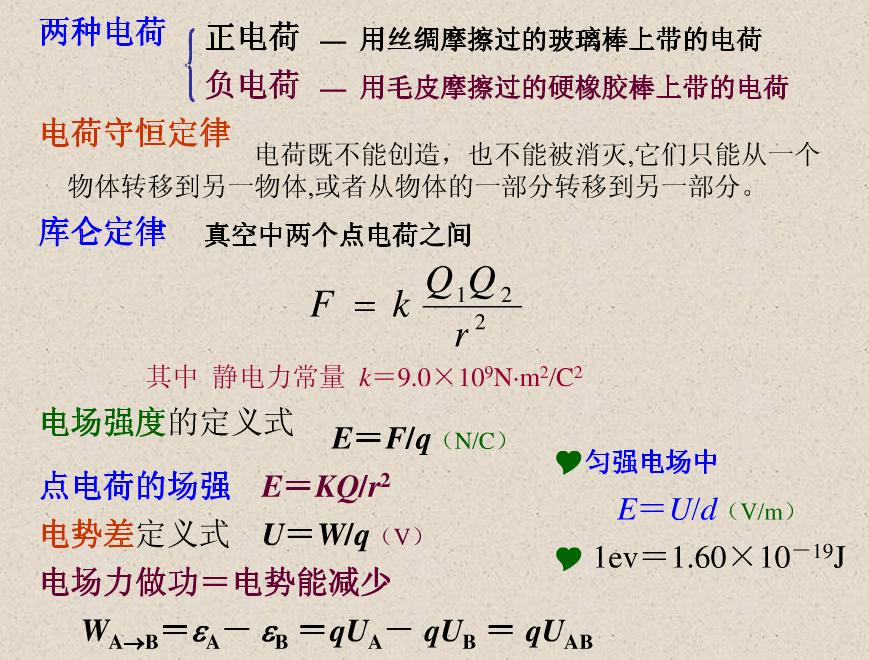 两种电荷 正电荷 — 用丝绸摩擦过的玻璃棒上带的电荷
负电荷 — 用毛皮摩擦过的硬橡胶棒上带的电荷
电荷守恒定律
电荷既不能创造，也不能被消灭,它们只能从一个
物体转移到另一物体,或者从物体的一部分转移到另一部分。
库仑定律 真空中两个点电荷之间
F = k Q₁Q₂ / r²
其中 静电力常量 k＝9.0×10⁹N·m²/C²
电场强度的定义式 E＝F/q（N/C）
匀强电场中
点电荷的场强 E＝KQ/r²
E＝U/d（V/m）
电势差定义式 U＝W/q（V）
1ev＝1.60×10⁻¹⁹J
电场力做功＝电势能减少
W_A→B＝ε_A－ ε_B ＝qU_A－ qU_B = qU_AB